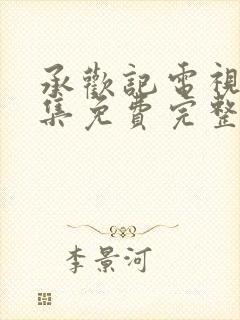 承歡記電視
集免費完整
李景河